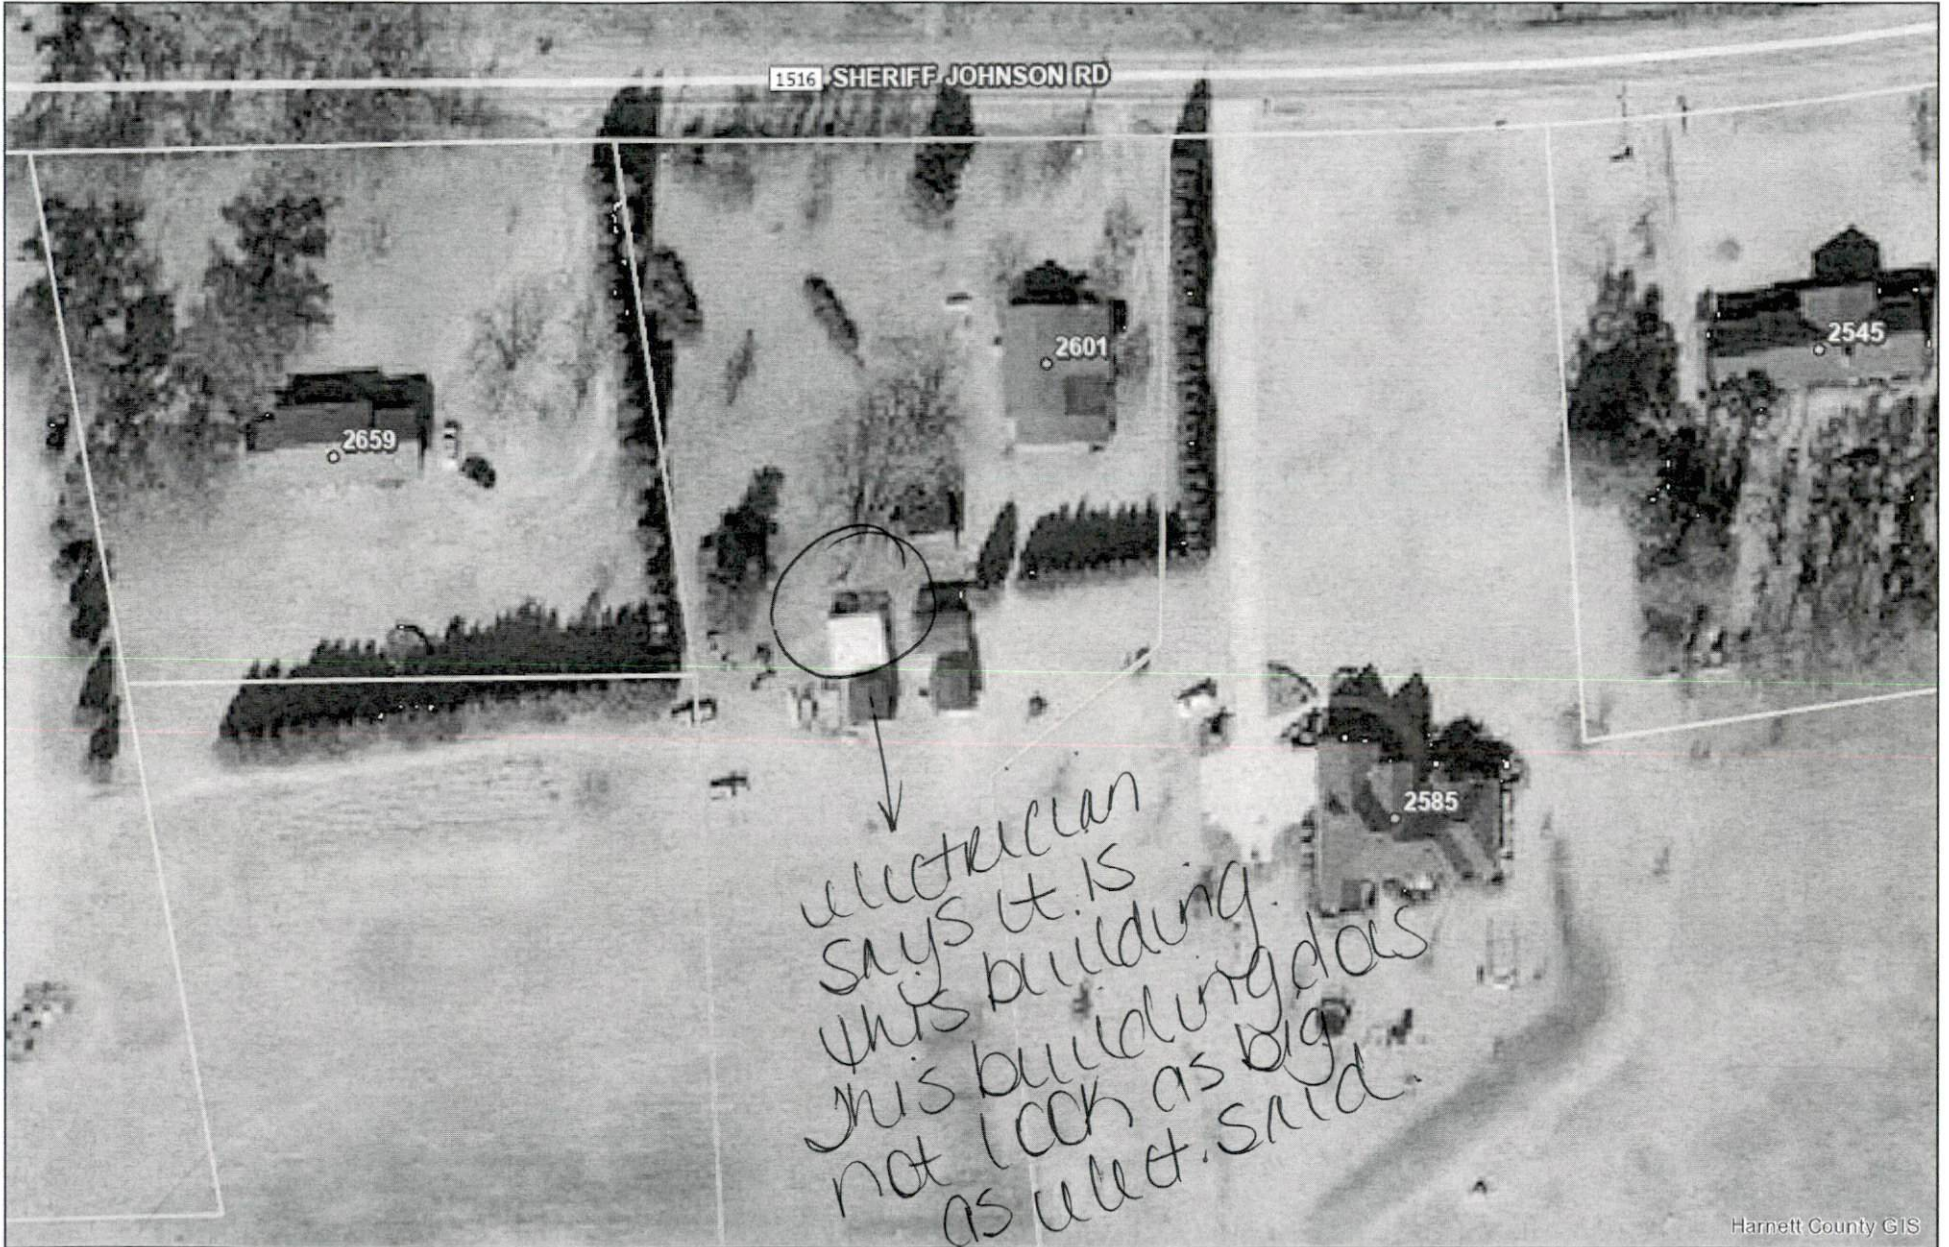 1516 SHERIFF JOHNSON RD
2601
2545
2659
2585
electrician
says it is
this building.
This building does
not look as big
as elect. said.
Harnett County GIS